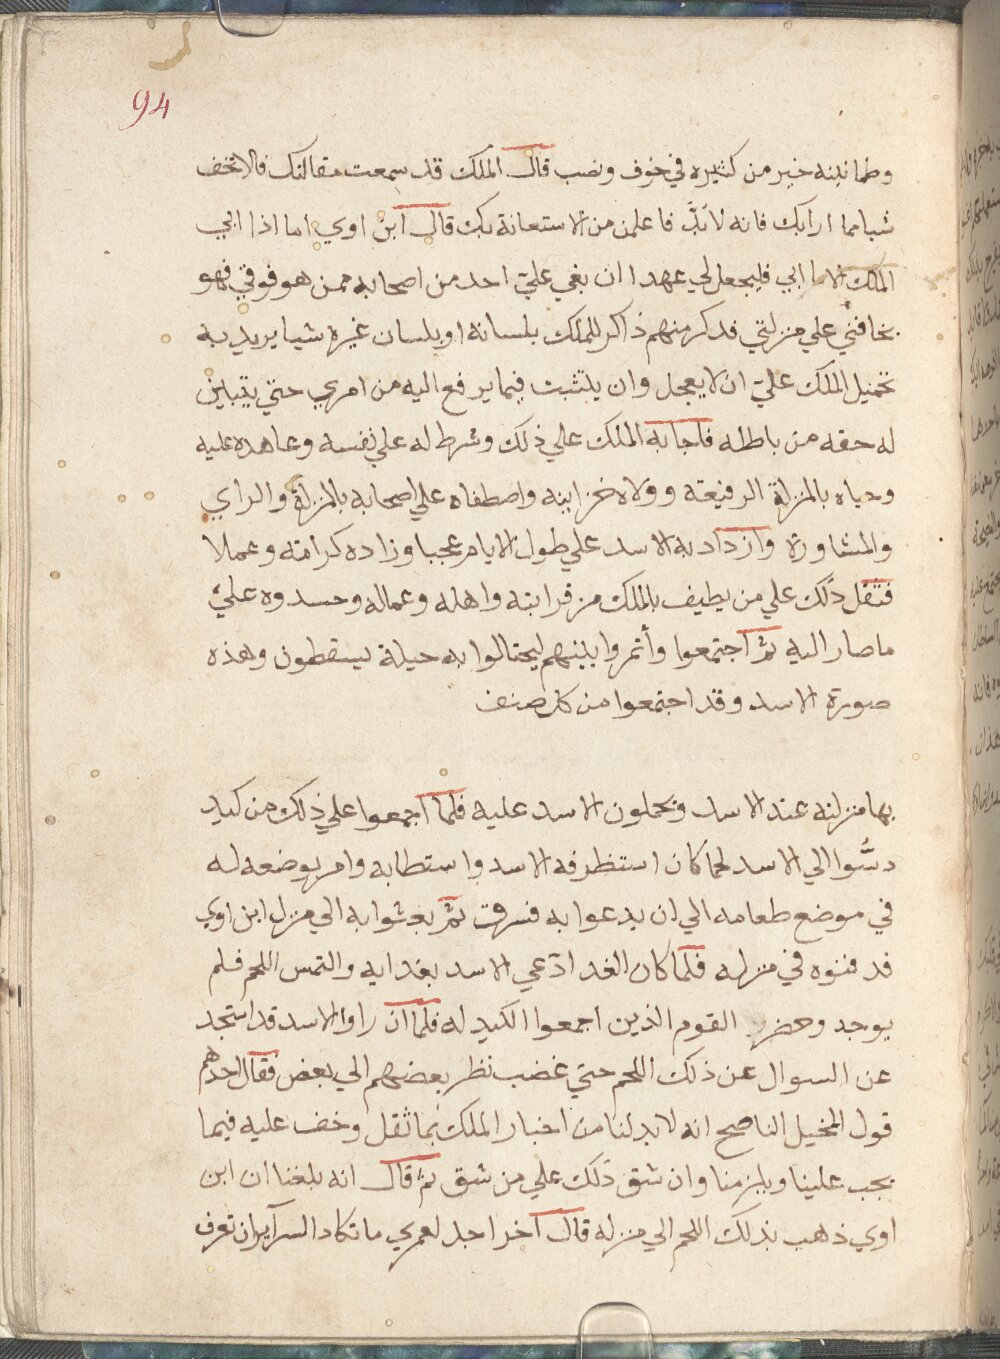 94
وطمانينه خير من كثيره في خوف ونصب قال الملك قد سمعت مقالتك فلا تخف
شيا مما اراك فانه لابد فاعلمن من الاستعانة بك قال ابن اوي اما اذا ابي
الملك الا ما ابي فليجعل لي عهدا ان بغي علي احد من اصحابه ممن هو فوقي فهو
يخافني علي منزلتي فدكر منهم ذاكر للملك بلسانه او بلسان غيره شيا يريد به
تحميل الملك علي ان لا يعجل وان يتثبت فيما يرفع اليه من امري حتي يتبين
له حقه من باطله فاجابه الملك علي ذلك وشرط له علي نفسه وعاهده عليه
وحباه بالمنزلة الرفيعة وولاه خزاينه واصطفاه علي اصحابه بالمنزلة والراي
والمشاورة وازداد به الاسد علي طول الايام عجبا وزاده كرامة وعملا
فثقل ذلك علي من يطيف بالملك من قرابته واهله وعماله وحسدوه علي
ما صار اليه ثم اجتمعوا وأتمروا بينهم ليحتالوا به حيلة يسقطون وهذه
صورة الاسد وقد اجتمعوا من كل صنف
بها منزلته عند الاسد ويحملون الاسد عليه فلما اجمعوا علي ذلك من كيد
دسُّوا الي الاسد لحما كان استظرفه الاسد واستطابه وامر بوضعه له
في موضع طعامه الي ان يدعوا به فسرقت ثم بعثوا به الي منزل ابن اوي
فدفنوه في منزله فلما كان الغد ادعي الاسد بغدايه والتمس اللحم فلم
يوجد وحضر القوم الذين اجمعوا الكيد له فلما ان راوا الاسد قد استجد
عن السوال عن ذلك اللحم حتي غضب نظر بعضهم الي بعض فقال احدهم
قول المخيل الناصح انه لابد لنا من اخبار الملك بما ثقل وخف عليه فيما
يجب علينا ويلزمنا وان شق ذلك علي من شق ثم قال انه بلغنا ان ابن
اوي ذهب بذلك اللحم الي منزله قال آخر اجل لعمري ما تكاد السرآير ان تعرف